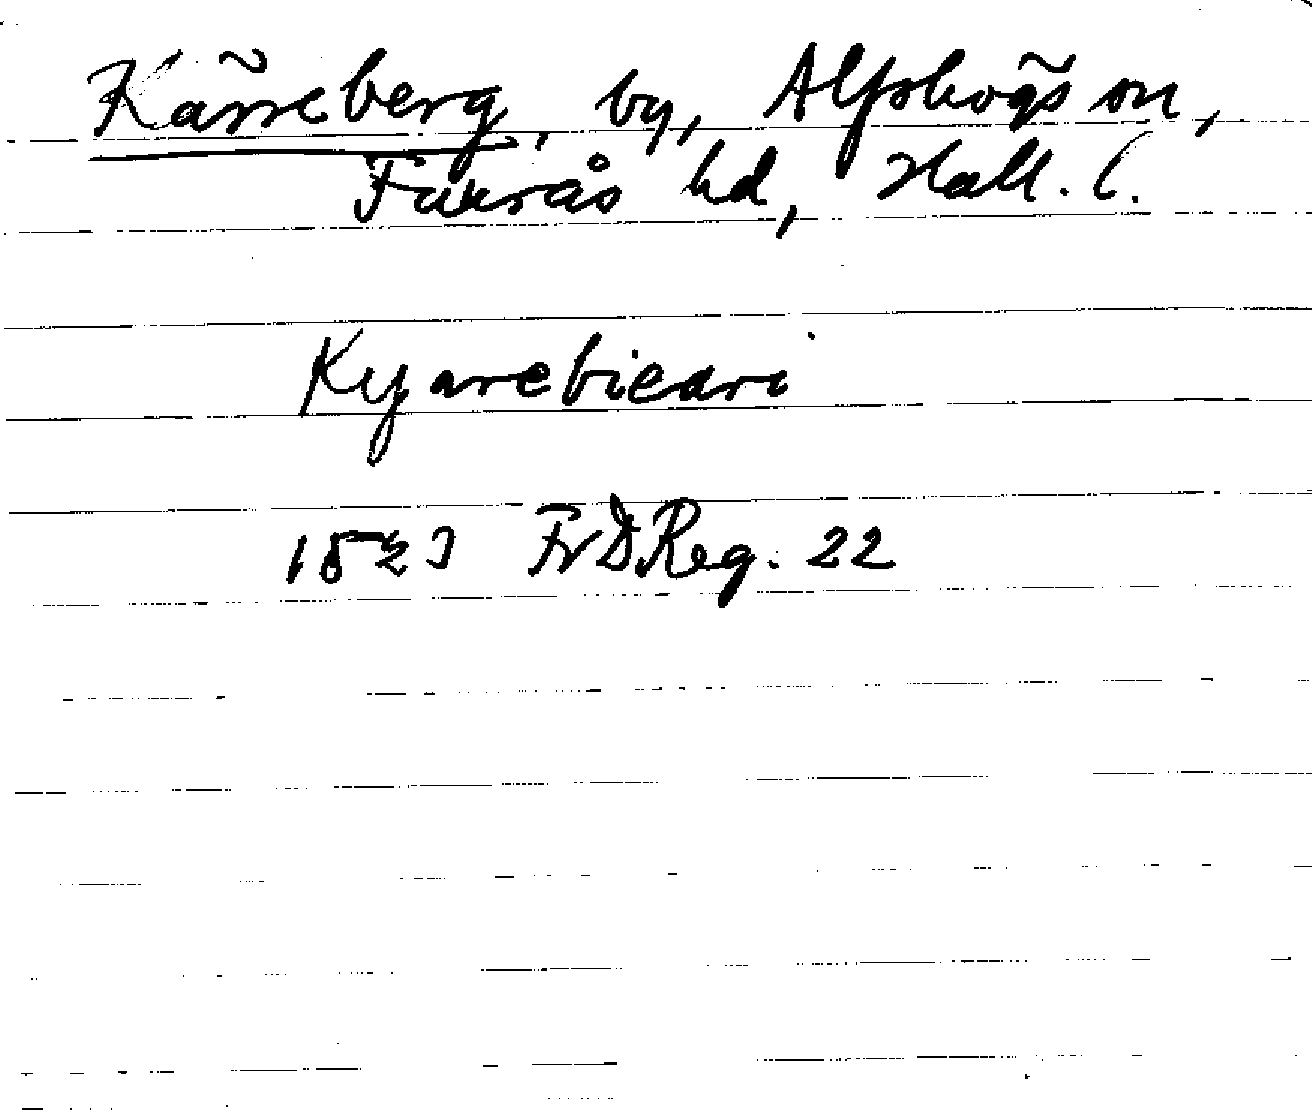 Kärreberg, by, Alfshögs sn,
Faurås hd, Hall. l.
Kyarrebieari
1523 FrDReg. 22